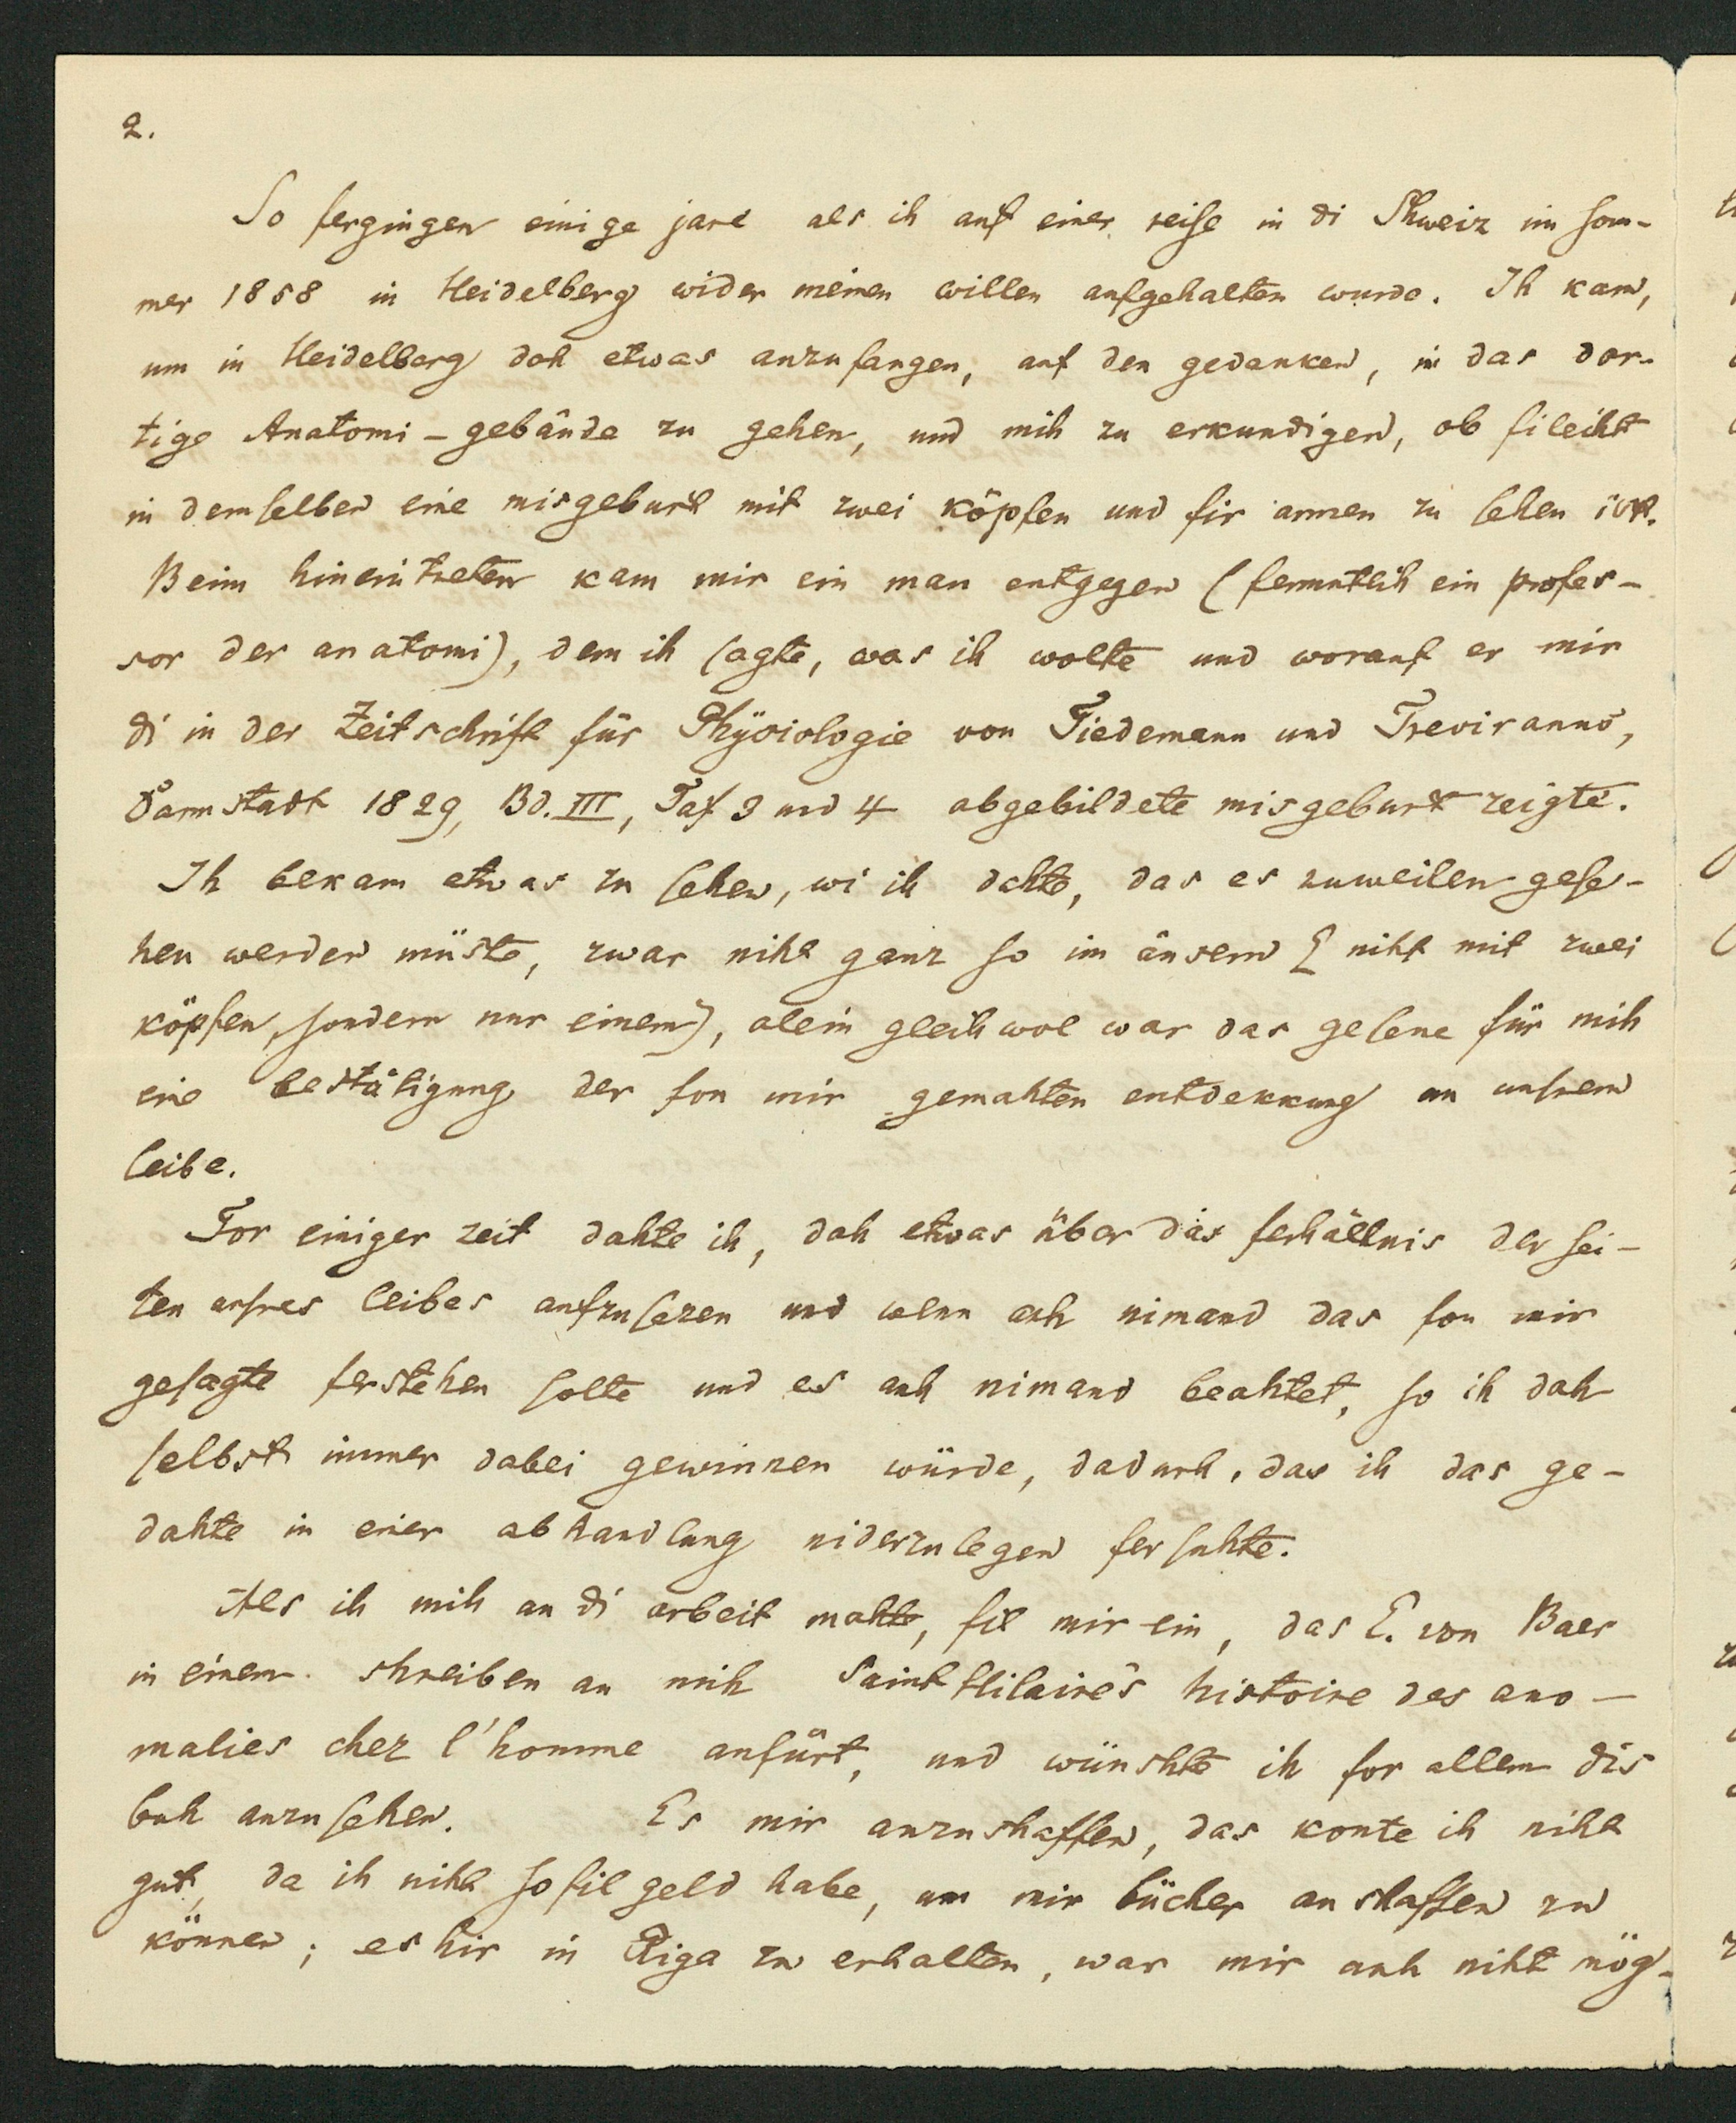 2.
So fergingen einige jare als ih auf einer reise in di Shweiz im som-
mer 1858 in Heidelberg wider meinen willen aufgehalten wurde. Ih kam,
um in Heidelberg doh etwas anzufangen, auf den gedanken, in das dor-
tige Anatomi-gebäude zu gehen, und mih zu erkundigen, ob fileiht
in demselben eine misgeburt mit zwei köpfen und fir armen zu sehen ist.
Beim hineintreten kam mir ein man entgegen (fermutlih ein profes-
sor der anatomi), dem ih sagte, was ih wolte und worauf er mir
di in der Zeitschrift für Physiologie von Tiedemann und Treviranus,
Darmstadt 1829, Bd. III, Taf 3 und 4 abgebildete misgeburt zeigte.
Ih bekam etwas zu sehen, wi ih dahte, das es zuweilen gese-
hen werden müste, zwar niht ganz so im äusern (niht mit zwei
köpfen, sondern nur einem), alein gleihwol war das gesene für mih
eine bestätigung der fon mir gemahten entdekkung an unsrem
leibe.
For einiger zeit dahte ih, doh etwas über das ferhältnis der sei-
ten unsres leibes aufzusezen und wenn auh nimand das fon mir
gesagte ferstehen solte und es auh nimand beahtet, so ih doh
selbst immer dabei gewinnen würde, dadurh, das ih das ge-
dahte in einer abhandlung niderzulegen fersuhte.
Als ih mih an di arbeit mahte, fil mir ein, das E. von Baer
in einem shreiben an mih Saint Hilaire's histoire des ano-
malies chez l'homme anfürt, und wünshte ih for allem dis
buh anzusehen. Es mir anzushaffen, das konte ih niht
gut, da ih niht so fil geld habe, um mir bücher anshaffen zu
können; es hir in Riga zu erhalten, war mir auh niht mög-